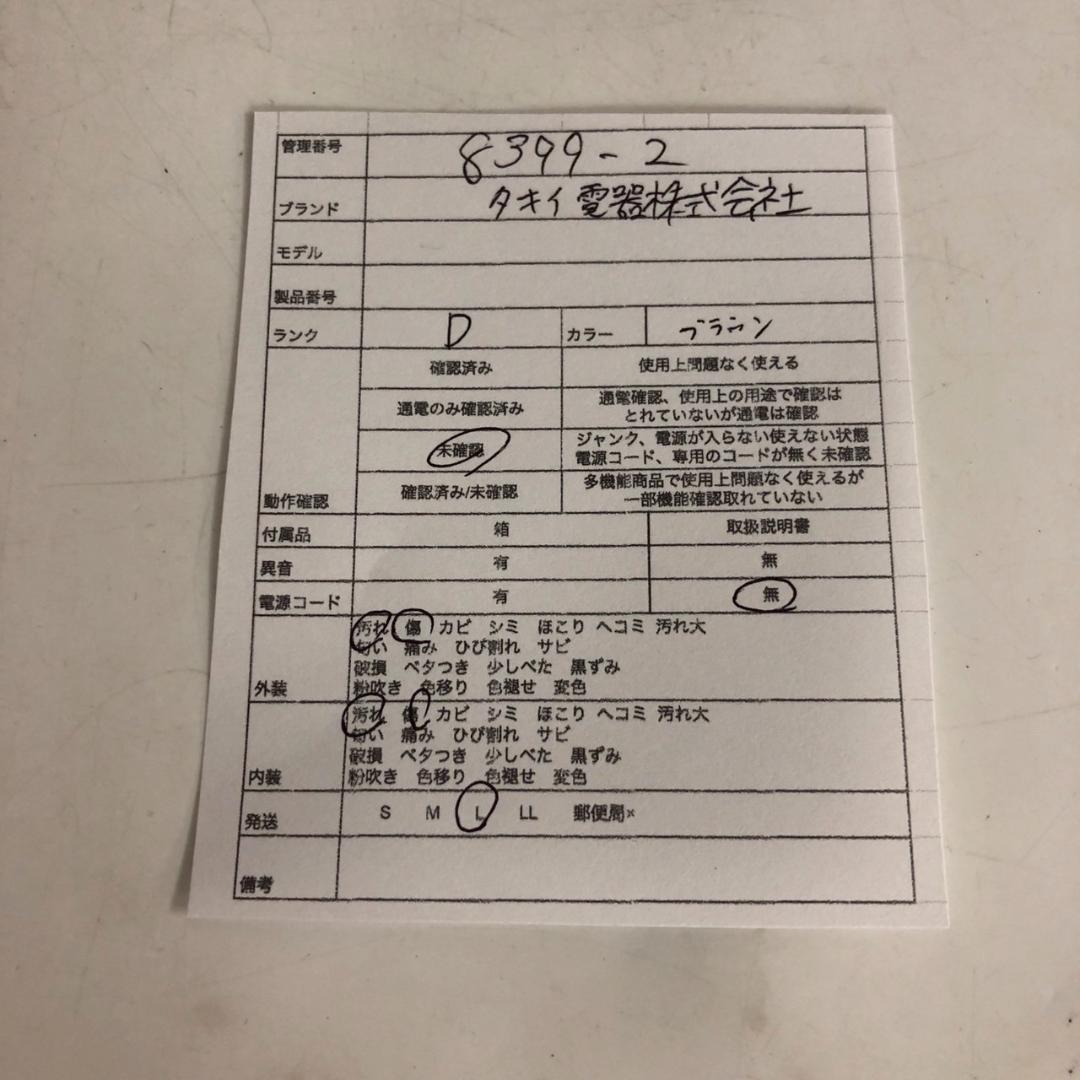 管理番号 8399-2
ブランド タキイ電器株式会社
モデル
製品番号
ランク D カラー ブラウン
確認済み 使用上問題なく使える
通電のみ確認済み 通電確認、使用上の用途で確認は
とれていないが通電は確認
未確認 ジャンク、電源が入らない使えない状態
電源コード、専用のコードが無く未確認
動作確認 確認済み/未確認 多機能商品で使用上問題なく使えるが
一部機能確認取れていない
付属品 箱 取扱説明書
異音 有 無
電源コード 有 無
汚れ 傷 カビ シミ ほこり ヘコミ 汚れ大
匂い 痛み ひび割れ サビ
破損 ベタつき 少しべた 黒ずみ
外装 粉吹き 色移り 色褪せ 変色
汚れ 傷 カビ シミ ほこり ヘコミ 汚れ大
匂い 痛み ひび割れ サビ
破損 ベタつき 少しべた 黒ずみ
内装 粉吹き 色移り 色褪せ 変色
発送 S M L LL 郵便局×
備考